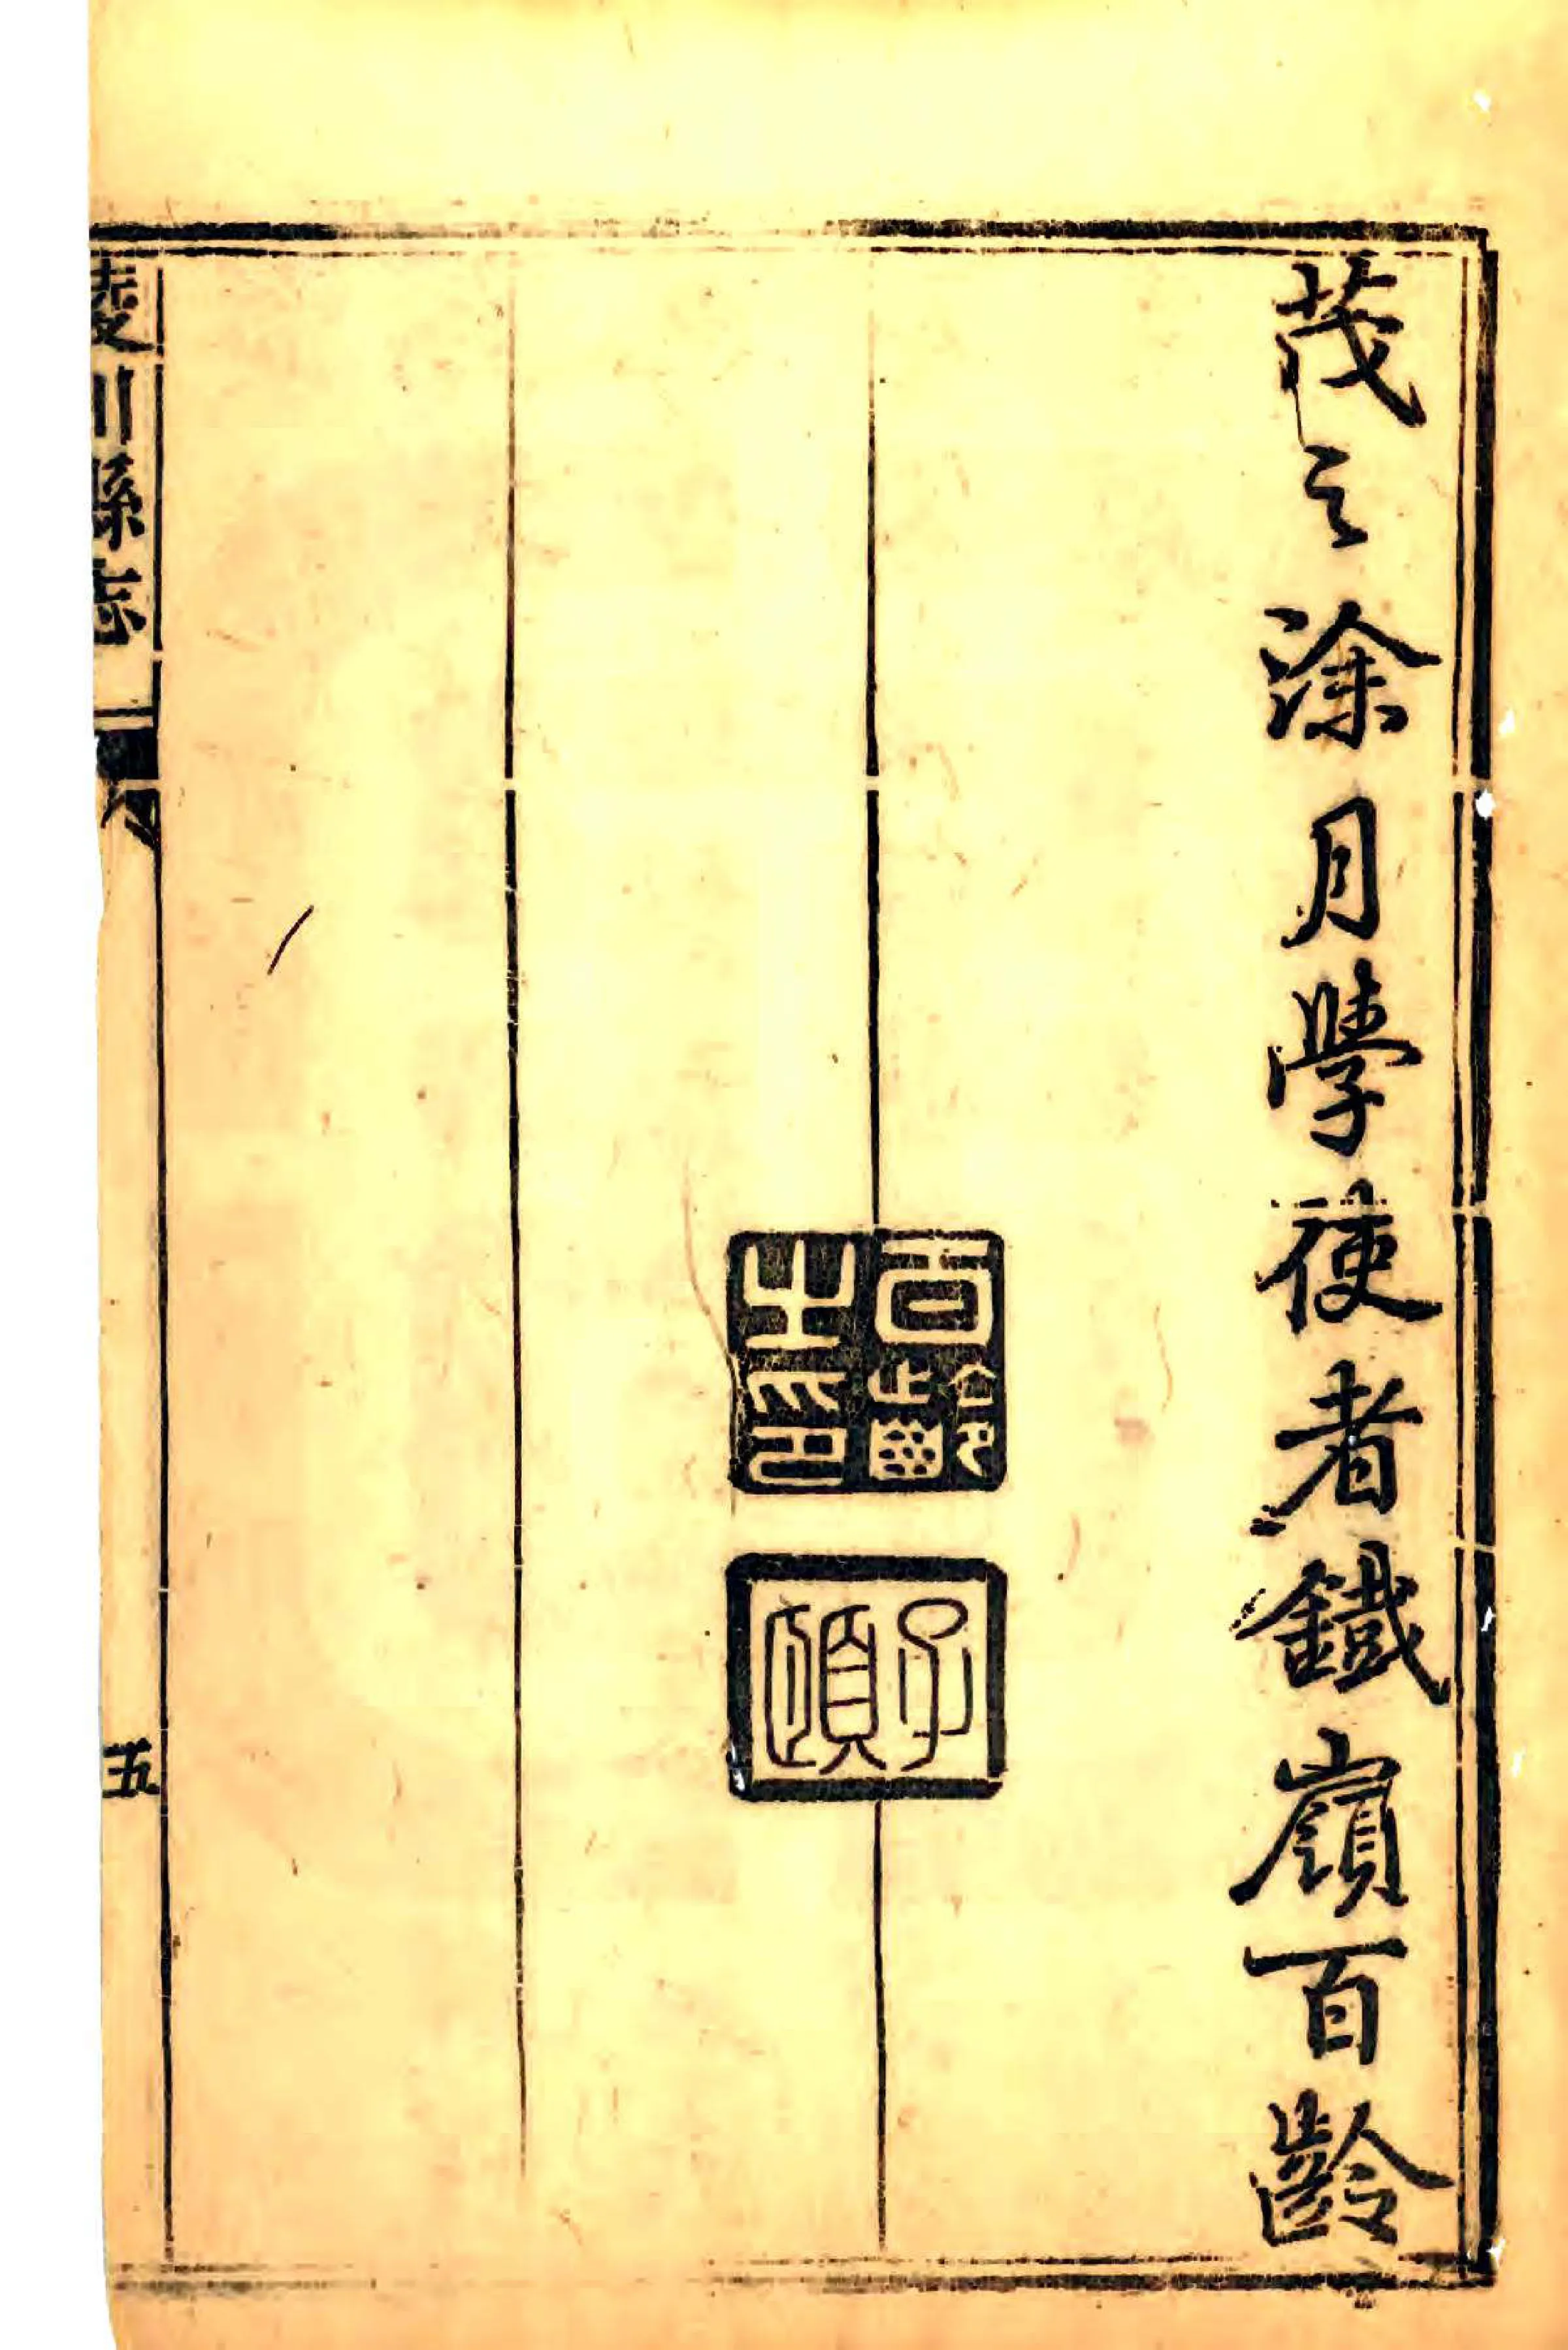 茂之涂月學使者鐵嶺百齡
百齡之印
子頤
陵川縣志
五